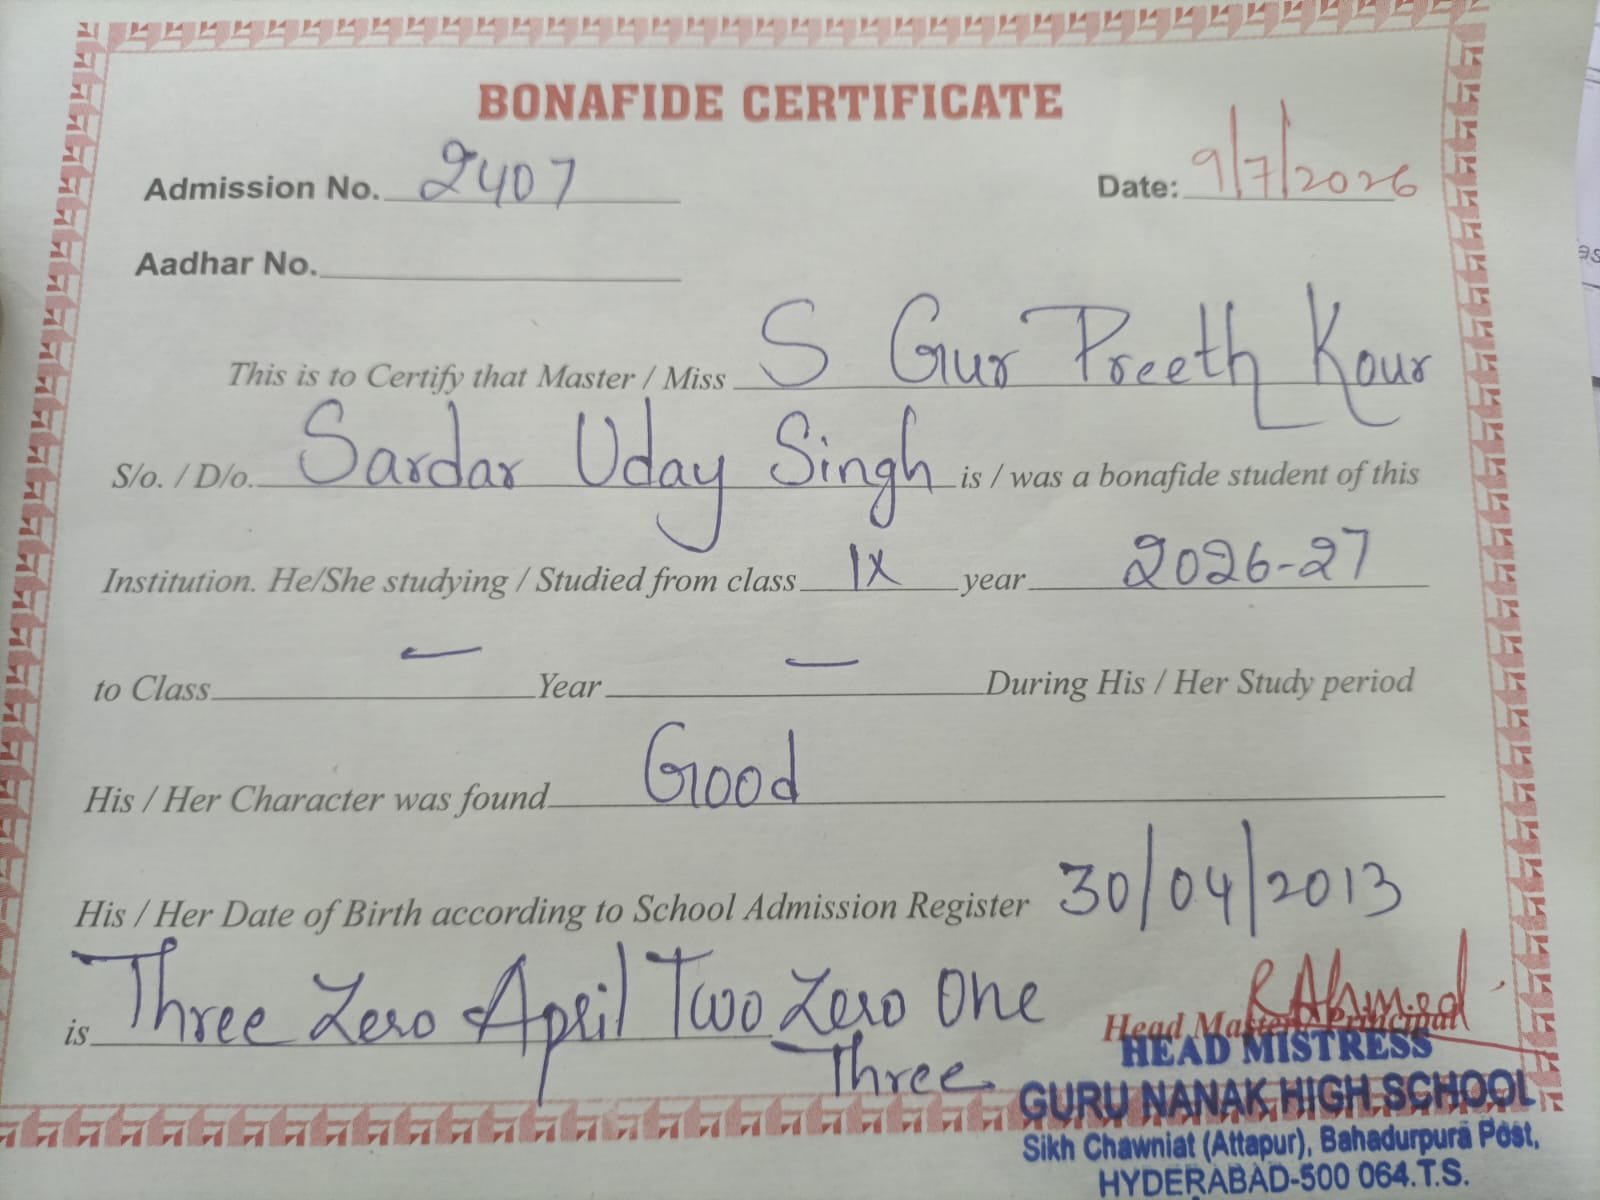 BONAFIDE CERTIFICATE
Admission No. 2407 Date: 9/7/2026
Aadhar No.
This is to Certify that Master / Miss S Gur Preeth Kour
S/o. / D/o. Sardar Uday Singh is / was a bonafide student of this
Institution. He/She studying / Studied from class IX year 2026-27
to Class — Year — During His / Her Study period
His / Her Character was found Good
His / Her Date of Birth according to School Admission Register 30/04/2013
is Three Zero April Two Zero One
Three
R Ahmed
Head Master / Principal
HEAD MISTRESS
GURU NANAK HIGH SCHOOL
Sikh Chawniat (Attapur), Bahadurpura Post,
HYDERABAD-500 064.T.S.